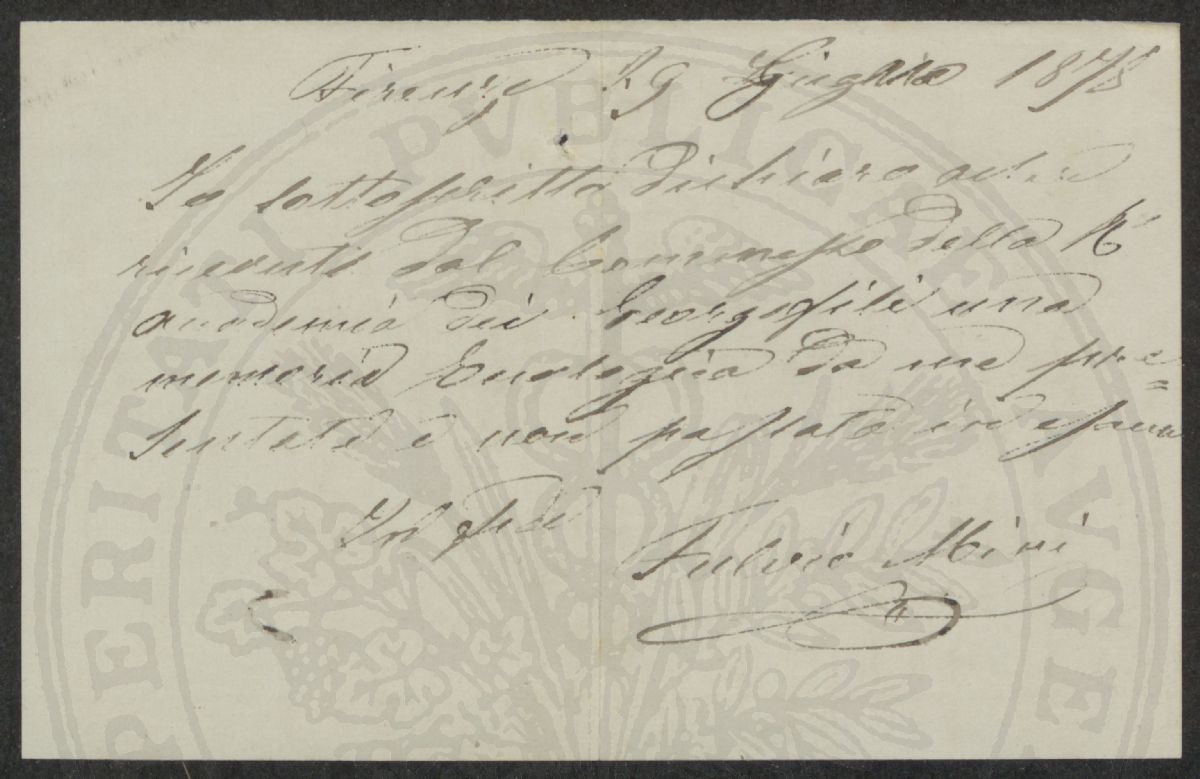 Firenze 29 Giugno 1878
Io sottoscritto dichiaro aver
ricevuto dal Commesso della R.
accademia dei Georgofili una
memoria Enologica da me pre=
sentata e non passata in esame
In fede
Fulvio Mini
PROSPERITATI PVBLICAE AVGE